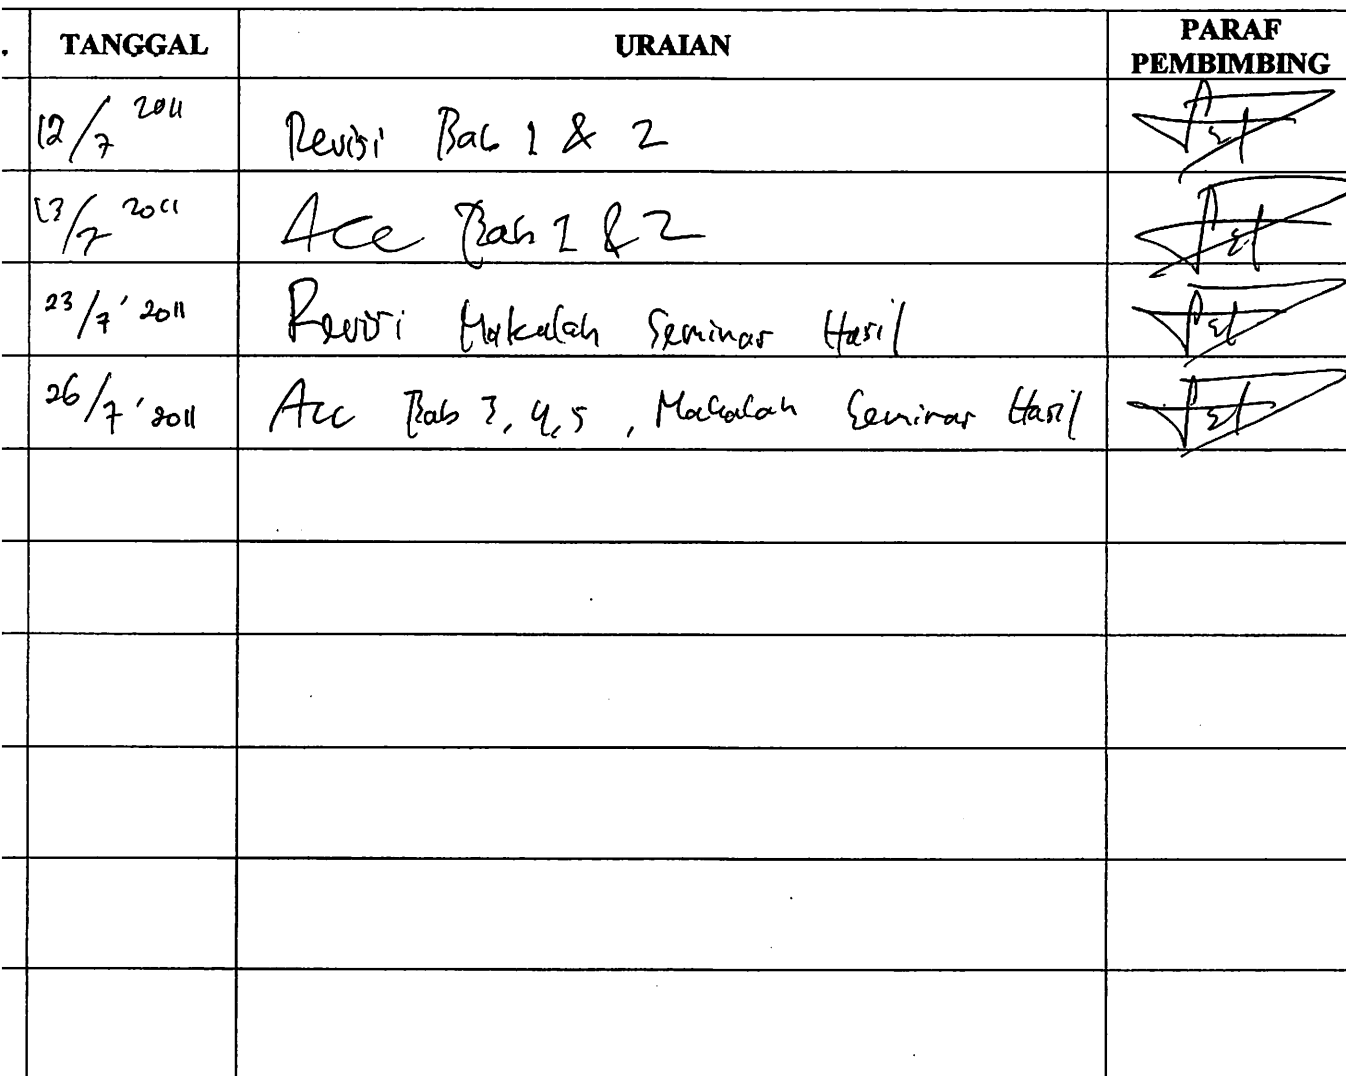 . TANGGAL URAIAN PARAF PEMBIMBING
12/7 2011 Revisi Bab 1 & 2
13/7 2011 Acc Bab 1 & 2
23/7' 2011 Revisi Makalah Seminar Hasil
26/7' 2011 Acc Bab 3, 4, 5, Makalah Seminar Hasil